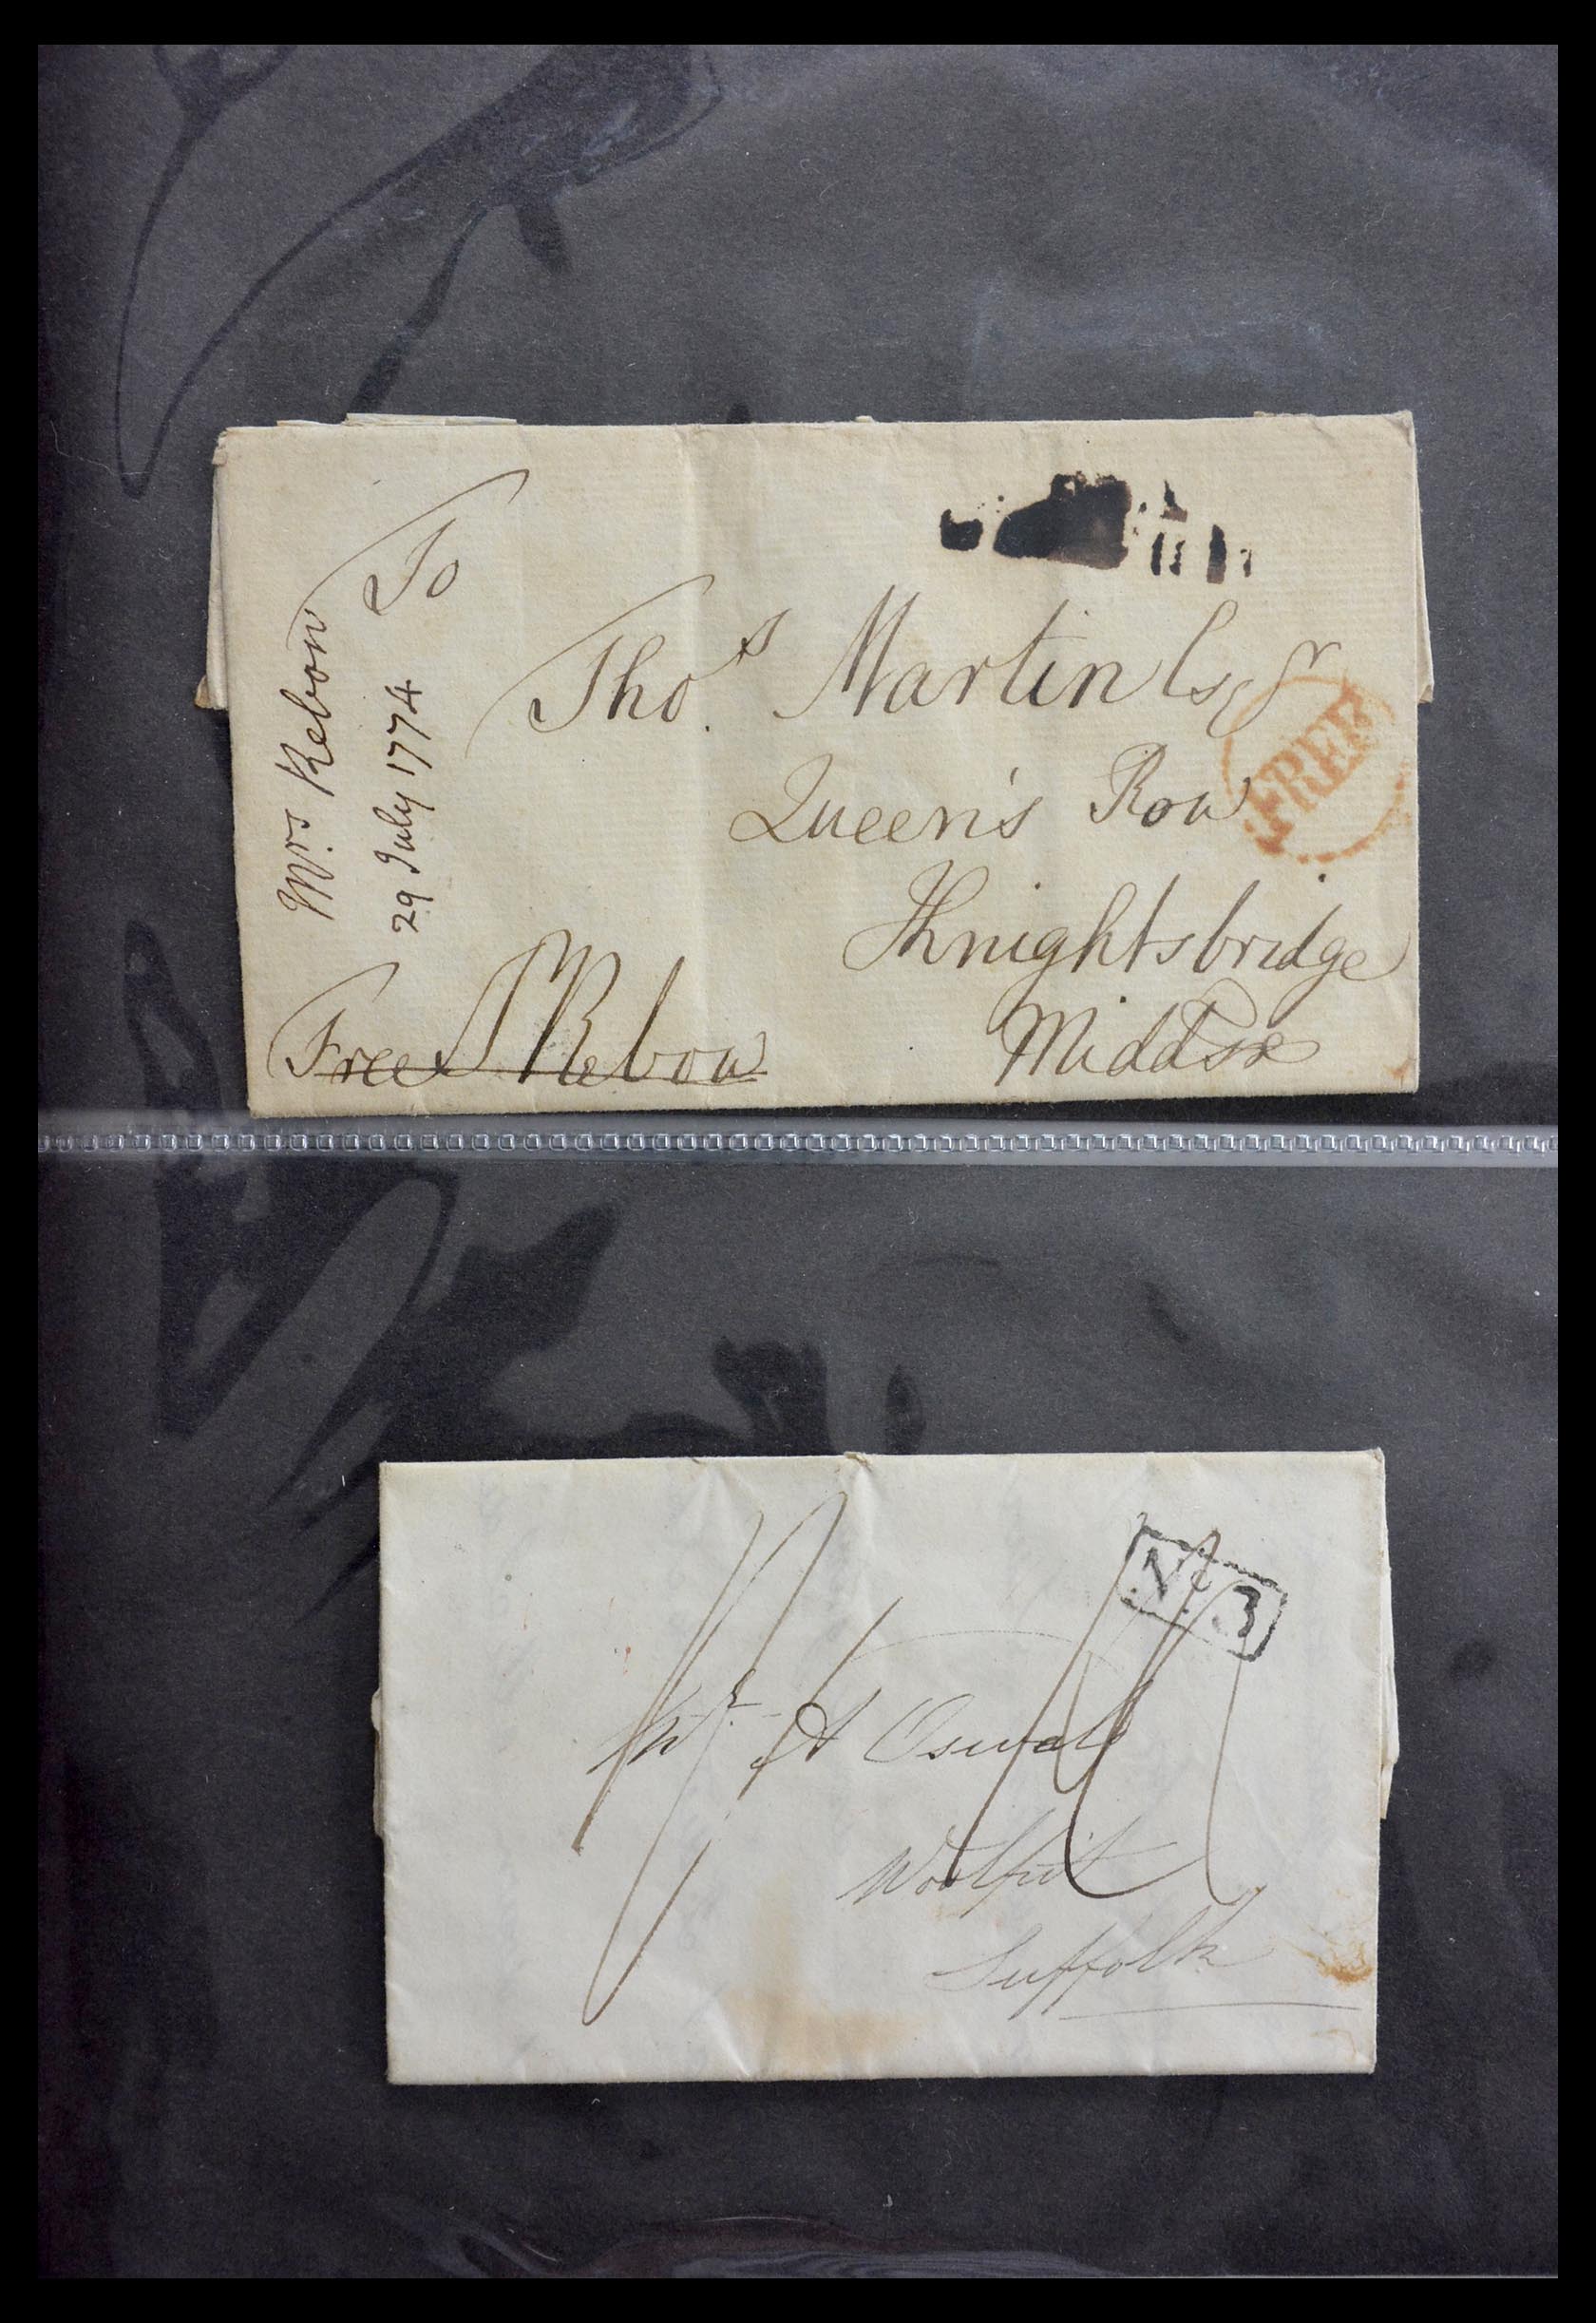 Mrs. Rebow
29 July 1774
To
Thos. Martin Esqr
FREE
Queen's Row
Knightsbridge
Middsx
Free Rebow
No. 3
Oswald
Woolpit
Suffolk